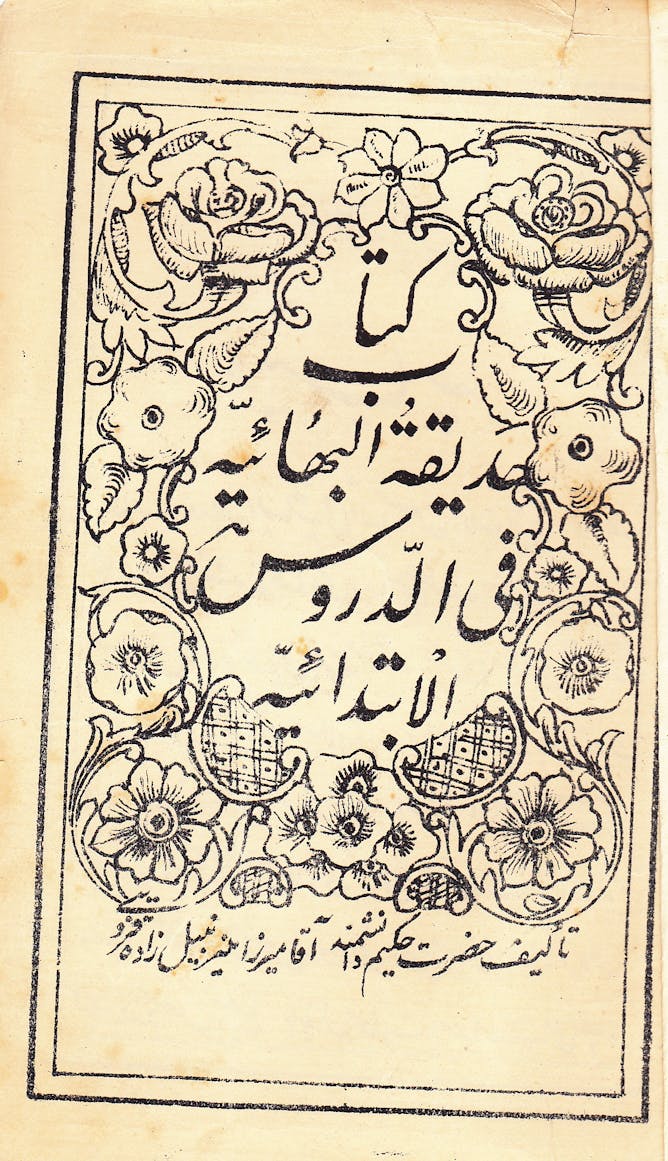 كتاب
حديقة البهائيّه
فى الدّروس
الْابتدائيّه
تأليف حضرت حكيم دانشمند آقا ميرزا منير نبيل زاده قزوينى